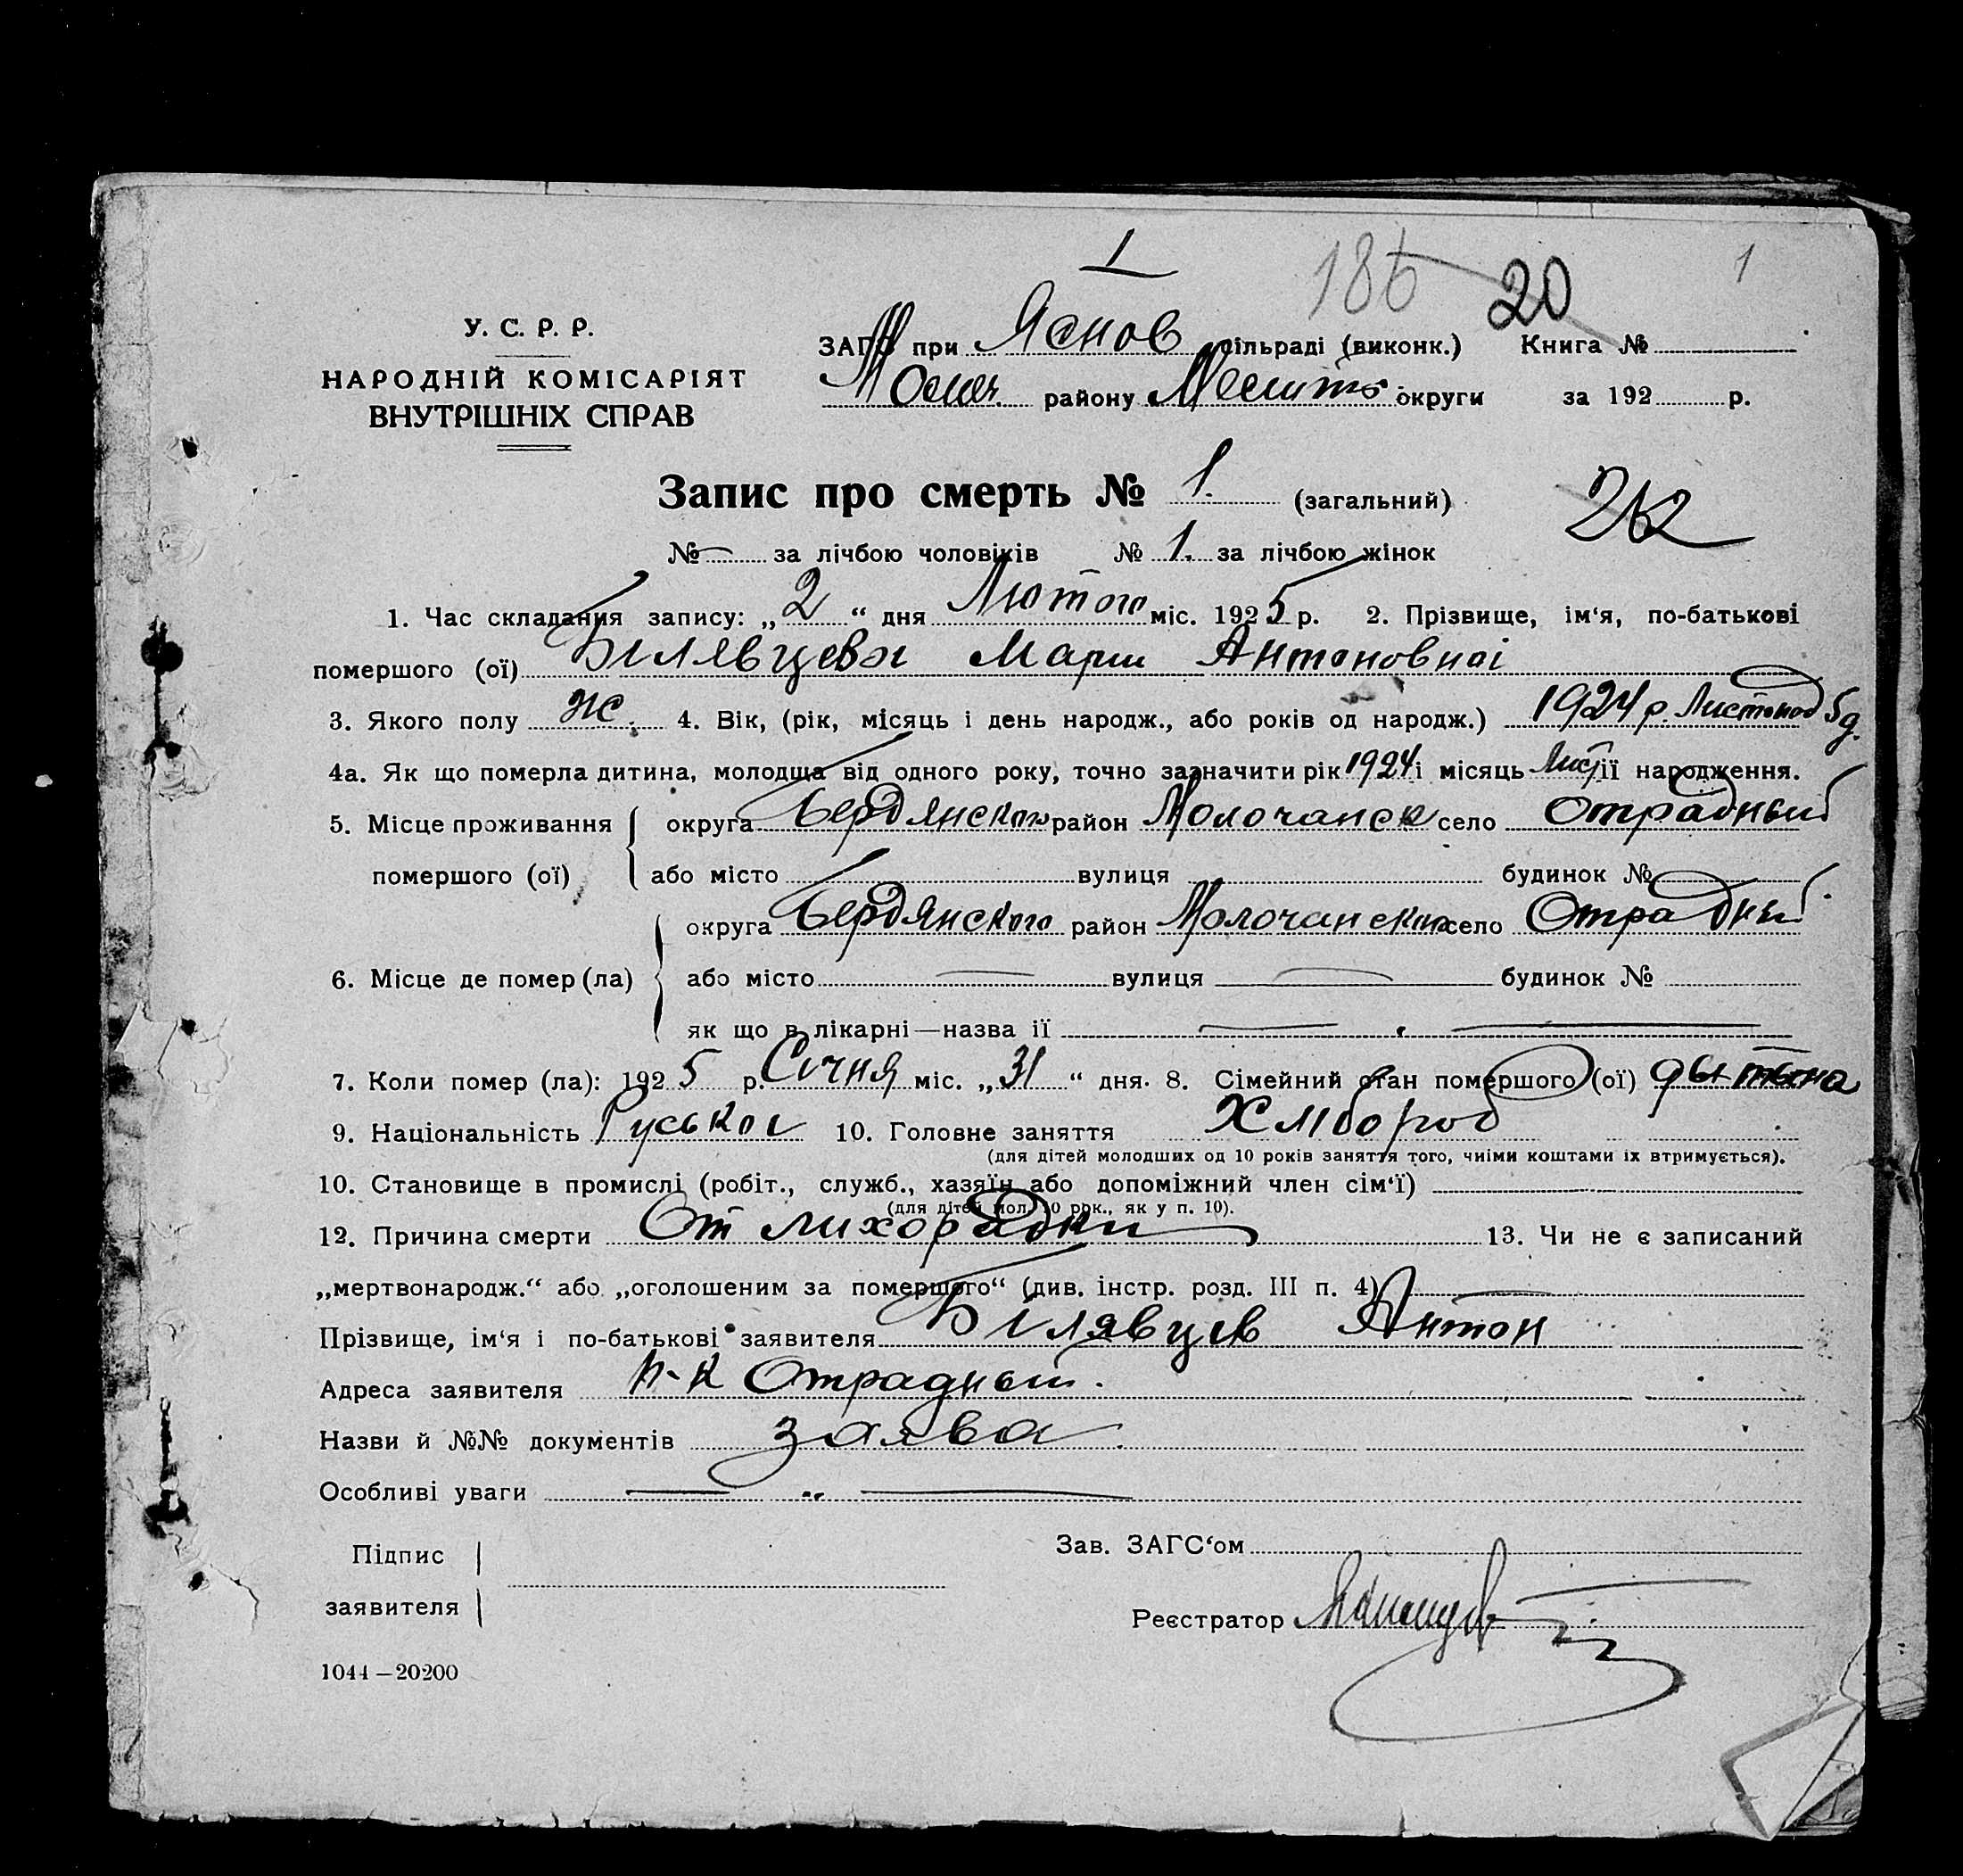 1
186 20 1
У. С. Р. Р.
НАРОДНІЙ КОМІСАРІЯТ
ВНУТРІШНІХ СПРАВ
ЗАГС при Яснов сільраді (виконк.) Книга №
району Меліт округи за 192 р.
Запис про смерть № 1. (загальний)
262
№ — за лічбою чоловіків № 1. за лічбою жінок
1. Час складання запису: „2“ дня Лютого міс. 1925 р. 2. Прізвище, ім‘я, по-батькові
помершого (ої) Білявцева Марии Антоновноі
3. Якого полу Ж. 4. Вік, (рік, місяць і день народж., або років од народж.) 1924 р. Листопод 5 д.
4а. Як що померла дитина, молодща від одного року, точно зазначити рік 1924 і місяць Лист її народження.
5. Місце проживання округа Бердянского район Молочанск село Отрадный
помершого (ої) або місто вулиця будинок №
округа Бердянского район Молочанского село Отрадный
6. Місце де помер (ла) або місто — вулиця — будинок №
як що в лікарні—назва її —
7. Коли помер (ла): 1925 р. Січня міс. „31“ дня. 8. Сімейний стан помершого (ої) дытына
9. Національність Руської 10. Головне заняття Хлібороб
(для дітей молодших од 10 років заняття того, чиїми коштами їх втримується).
10. Становище в промислі (робіт., служб., хазяїн або допоміжний член сім‘ї)
(для дітей мол. 10 рок., як у п. 10).
12. Причина смерти От лихорадки 13. Чи не є записаний
„мертвонародж.“ або „оголошеним за помершого“ (див. інстр. розд. III п. 4) —
Прізвище, ім‘я і по-батькові заявителя Білявцев Антон
Адреса заявителя Отрадный.
Назви й №№ документів заява
Особливі уваги — „ —
Підпис
заявителя
Зав. ЗАГС‘ом
Реєстратор
1044—20200